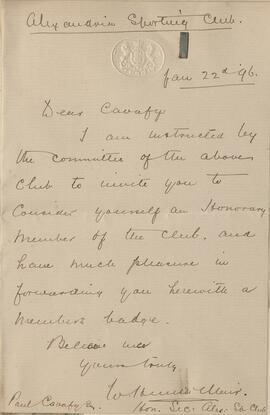 Alexandria Sporting Club.
Jan 22nd 96.
Dear Cavafy
I am instructed by
the committee of the above
Club to invite you to
consider yourself an Honorary
member of the Club. and
have much pleasure in
forwarding you herewith a
members badge.
Believe me
Yours truly
Hon. Sec: Alex: Sp Club
Paul Cavafy Esq.